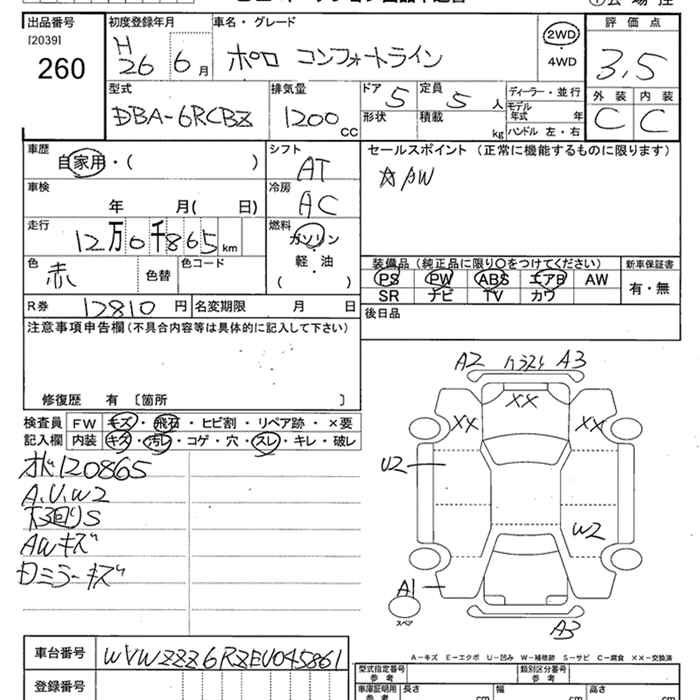 出品番号
[2039]
260
初度登録年月
H
26 6月
車名・グレード
ポロ コンフォートライン
2WD
・
4WD
評価点
3,5
外装 内装
C C
型式
DBA-6RCBZ
排気量
1200 CC
ドア 5
定員 5 人
形状
積載 kg
ディーラー・並行
モデル年式 年
ハンドル 左・右
車歴
自家用・( )
シフト
AT
セールスポイント (正常に機能するものに限ります)
☆AW
車検
年 月( 日)
冷房
AC
走行
12万0千865 km
燃料
ガソリン
軽・油
( )
色
赤
色替
色コード
装備品 (純正品に限り〇をつけてください)
新車保証書
PS PW ABS エアB AW
SR ナビ TV カワ
有・無
R券 12810 円
名変期限 月 日
後日品
注意事項申告欄 (不具合内容等は具体的に記入して下さい)
修復歴 有 〔箇所 〕
検査員
記入欄
FW キズ・飛石・ヒビ割・リペア跡・×要
内装 キズ・汚レ・コゲ・穴・スレ・キレ・破レ
メーター120865
A.U.W2
下廻りS
AWキズ
ロミラーキズ
A2 A3
XX
XX XX
U2
W2
A1
スペア
A3
A-キズ E-エクボ U-凹み W-補修跡 S-サビ C-腐食 XX-交換済
車台番号
WVWZZZ6RZEU045861
登録番号
型式指定番号
参考
類別区分番号
参考
車庫証明用
参考
長さ cm
幅 cm
高さ cm